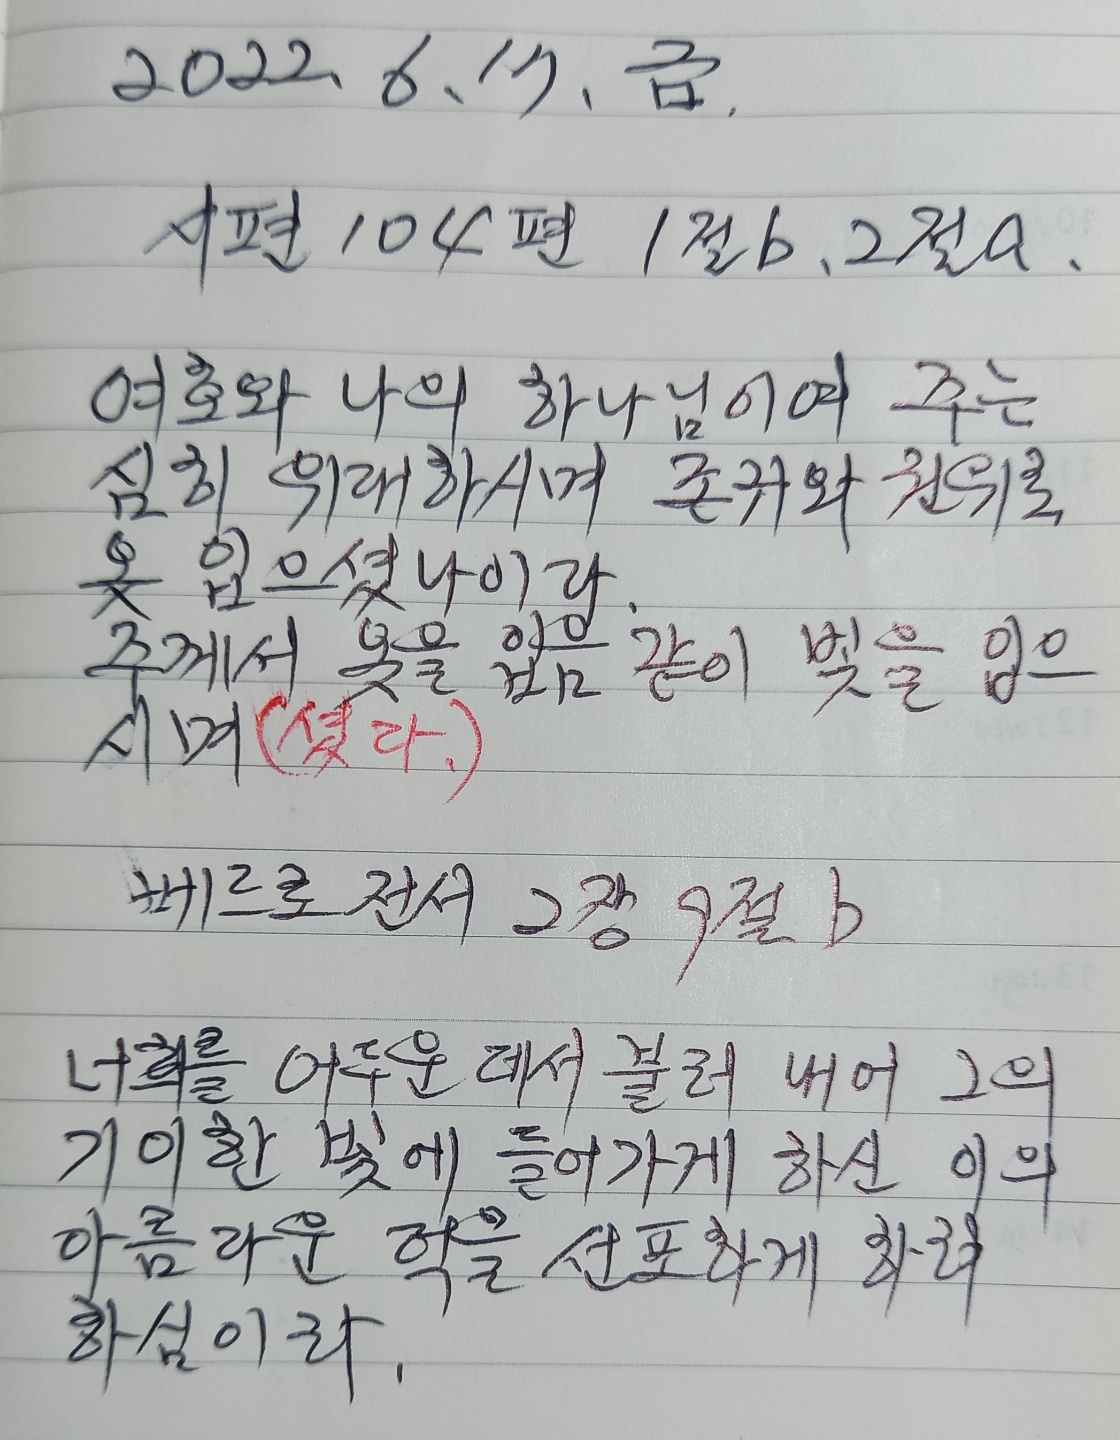 2022. 6. 17. 금.
시편 104편 1절b, 2절a.
여호와 나의 하나님이여 주는
심히 위대하시며 존귀와 권위로
옷 입으셨나이다.
주께서 옷을 입음 같이 빛을 입으
시며(셨다.)
베드로전서 2장 9절 b
너희를 어두운 데서 불러 내어 그의
기이한 빛에 들어가게 하신 이의
아름다운 덕을 선포하게 하려
하심이라.